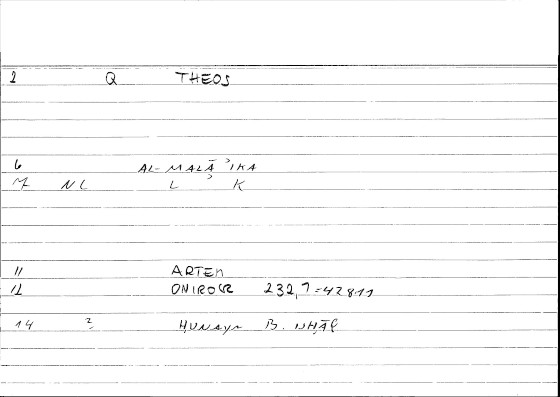 2 Q THEOS
6 AL-MALĀʾIKA
M NL L ʾ K
11 ARTEM
12 ONIROCR 232,7 = 42811
14 2, ḤUNAYN B. ISḤĀQ